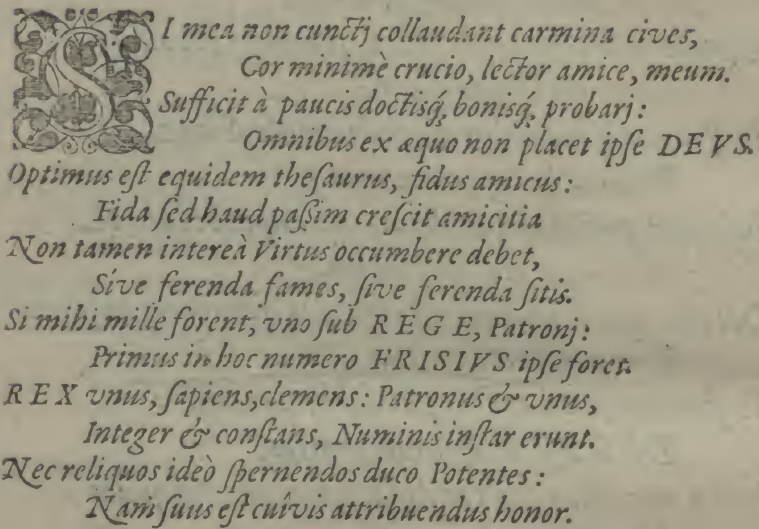 SI mea non cunctj collaudant carmina cives,
Cor minimè crucio, lector amice, meum.
Sufficit à paucis doctisq́, bonisq́, probarj:
Omnibus ex æquo non placet ipſe DEVS.
Optimus eſt equidem theſaurus, fidus amicus:
Fida ſed haud paßim creſcit amicitia
Non tamen intereà Virtus occumbere debet,
Síve ferenda fames, ſive ferenda ſitis.
Si mihi mille forent, vno ſub REGE, Patronj:
Primus in hoc numero FRISIVS ipſe foret.
REX vnus, ſapiens, clemens: Patronus & vnus,
Integer & conſtans, Numinis inſtar erunt.
Nec reliquos ideò ſpernendos duco Potentes:
Nam ſuus eſt cuívis attribuendus honor.